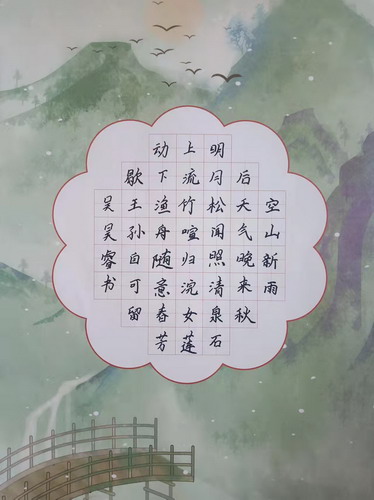 空山新雨
后天气晚来秋
明月松间照清泉石
上流竹喧归浣女莲
动下渔舟随意春芳
歇王孙自可留
吴昊睿书